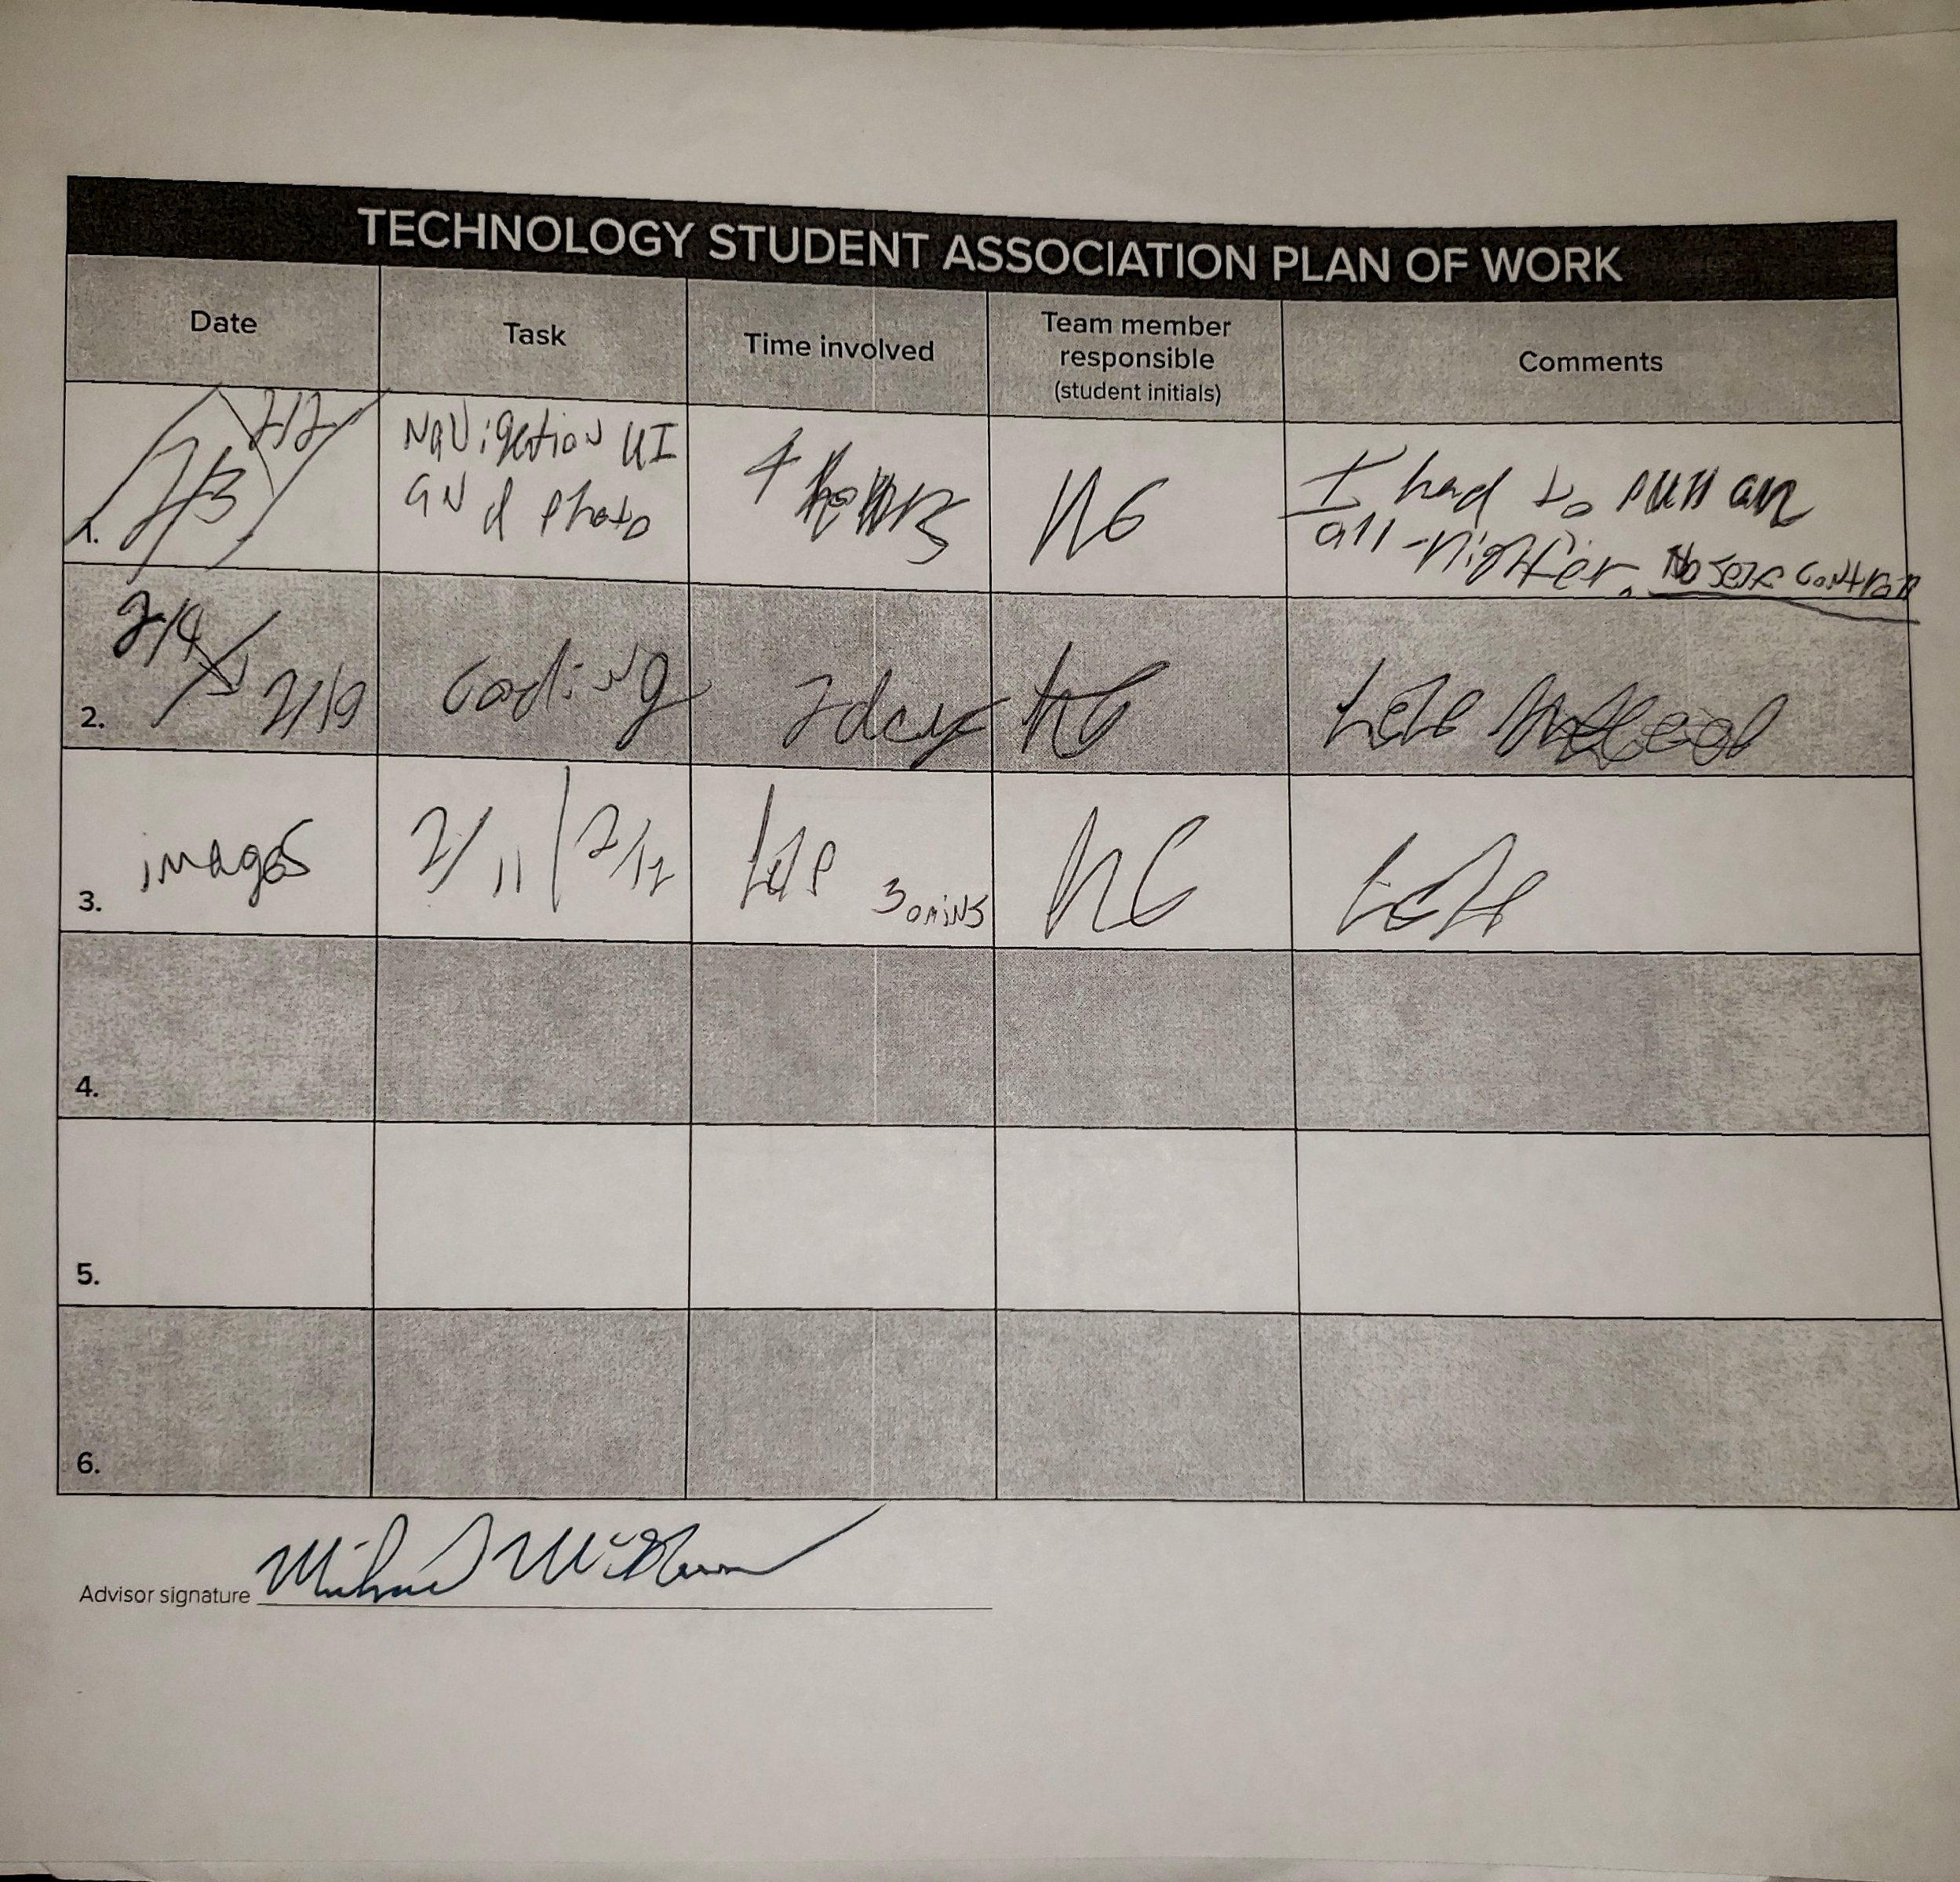 TECHNOLOGY STUDENT ASSOCIATION PLAN OF WORK
Date
Task
Time involved
Team member
responsible
(student initials)
Comments
1.
2/2
2/3
Navigation UI
and photo
4 hours
NG
I had to pull an
all-nighter. No self control
2.
2/4
2/9
coding
NG
Late
3.
images
2/11 | 2/12
30 mins
NG
Late
4.
5.
6.
Advisor signature